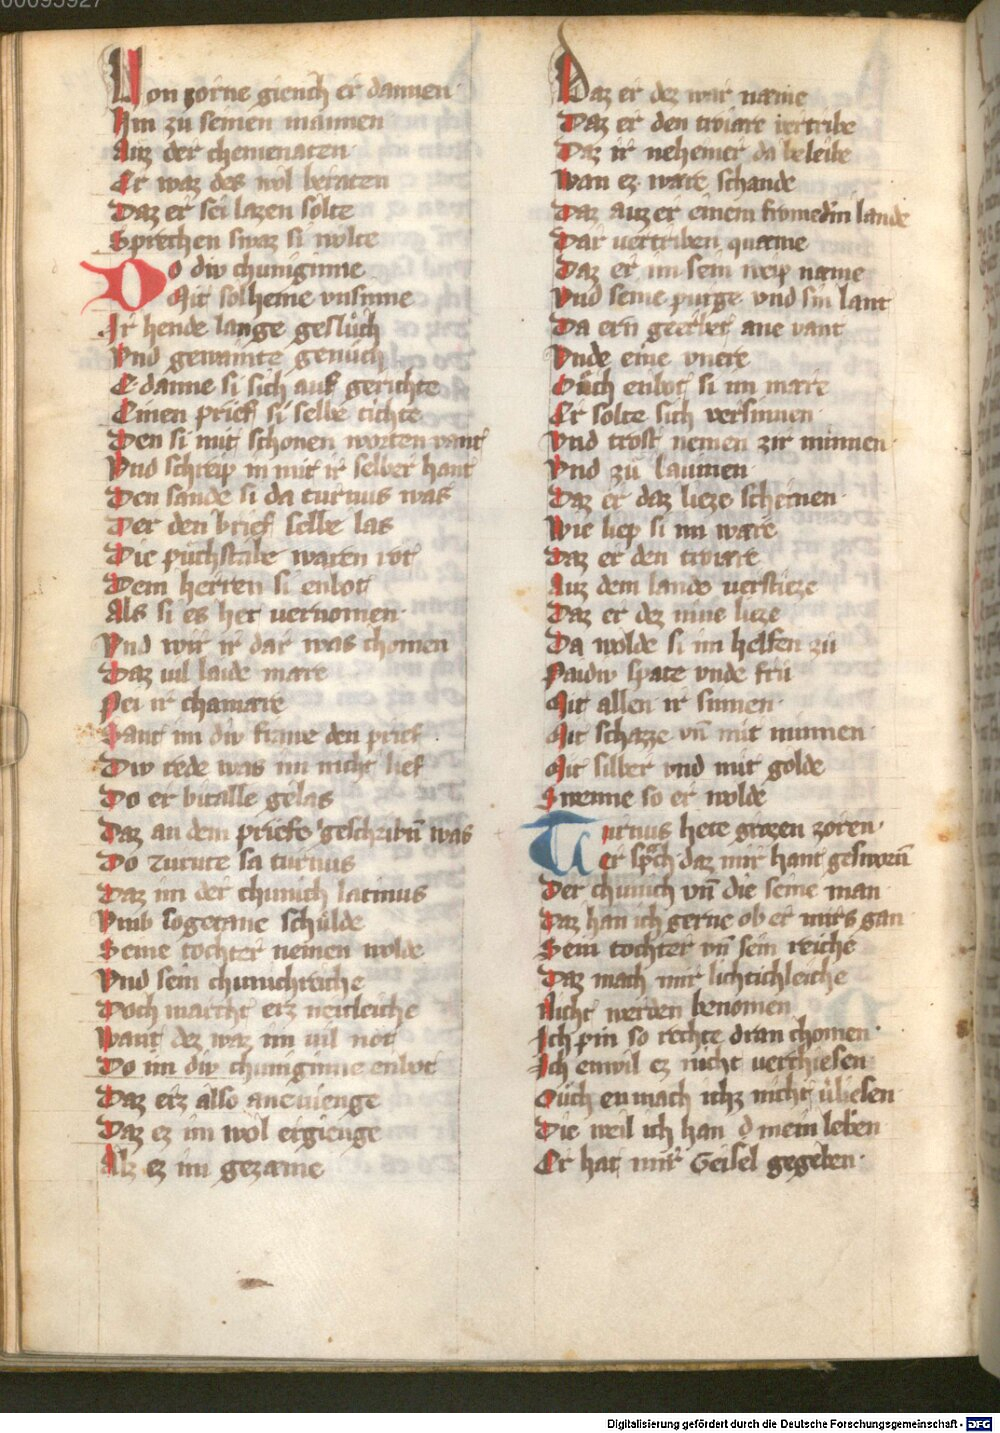 Von zorne giench er dannen
Hin zu seinen mannen
Auz der chemenaten
Er waz des wol beraten
Daz er sei lazen solte
Sprechen swaz si wolte
Do div chuniginne
Mit solheme vnsinne
Ir hende lange geslůch
Vnd gewainte genůch
E danne si sich auf gerichte
Einen prief si selbe tichte
Den si mit schonen worten vant
Vnd schreip in mit ir selber hant
Den sande si da turnus was
Der den brief selbe las
Die půchstabe waren rot
Dem herren si enbot
Als si es het vernomen
Vnd wir ir dar was chomen
Daz vil laide mare
Pei ir chamare
Sant im div frawe den prief
Div rede was im nicht lief
Do er bitalle gelas
Daz an dem priefe geschribñ was
Do turnus
Daz im der chunich latinus
Vmb sogetane schulde
Seine tochter neinen wolde
Vnd sein chunichreiche
Doch marcht erz neitleiche
Want dez waz im vil not
Do im div chuniginne enbot
Daz erz also aneuienge
Daz ez im wol ergienge
Alz ez im gezame
Daz er dez war name
Daz er den troiare vertribe
Daz ir nehemer da beleibe
Wan ez ware schande
Daz auzer einem fromedm lande
Dar vertriben quæme
Daz er im sein weip næme
Vnd seine purge vnd sin lant
Da ern geerbet ane vant
Vnde eine vnere
Ouch enbot si im mare
Er solte sich versinnen
Vnd trost nemen zir minnen
Vnd zů launen
Daz er daz lieze scheinen
Wie liep si im ware
Daz er den troiare
Auz dem lande verstieze
Daz er dez nine lieze
Da wolde si im helfen zů
Paidiv spate vnde frů
Mit allen ir sinnen
Mit schazze vñ mit minnen
Mit silber vnd mit golde
Swenne so er wolde
Turnus hete grozen zoren
Er sprach daz mir hant gesworñ
Der chunich vñ die seine man
Daz han ich gerne ob er mirs gan
Sein tochter vñ sein reiche
Daz mach mir lichtichleiche
Nicht werden benomen
Ich pin so rechte dran chomen
Ich enwil ez nicht verchiesen
Ouch enmach ichz nicht vliesen
Die weil ich han d mein leben
Er hat mir Geisel gegeben